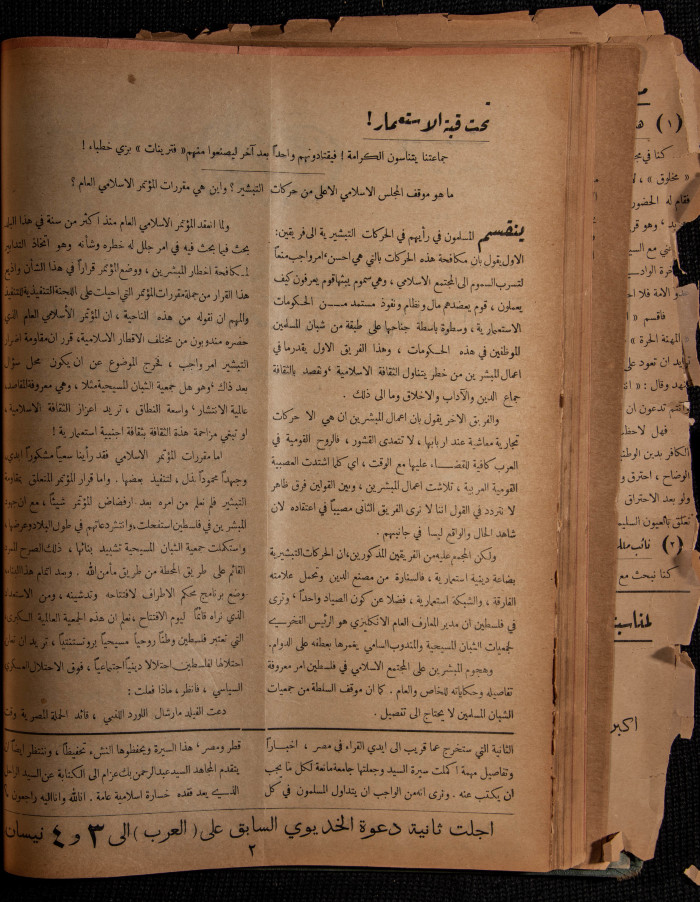 تحت قبة الاستعمار !
جماعتنا يتناسون الكرامة ! فيقتادونهم واحداً بعد آخر ليصنعوا منهم « فترينات » بزي خطباء !
ما هو موقف المجلس الاسلامي الاعلى من حركات التبشير ؟ واين هي مقررات المؤتمر الاسلامي العام ؟
ينقسم المسلمون في رأيهم في الحركات التبشيرية الى فريقين:
الاول يقول بان مكافحة هذه الحركات بالتي هي احسن ، امر واجب منعاً
لتسرب السموم الى المجتمع الاسلامي ، وهي سموم يبثها قوم يعرفون كيف
يعملون ، قوم يعضدهم مال ونظام ونفوذ مستمد من الحكومات
الاستعمارية ، وسطوة باسطة جناحها على طبقة من شبان المسلمين
الموظفين في هذه الحكومات ، وهذا الفريق الاول يقدر ما في
اعمال المبشرين من خطر يتناول الثقافة الاسلامية ، ونقصد بالثقافة
جماع الدين والآداب والاخلاق وما الى ذلك .
والفريق الاخر يقول بان اعمال المبشرين ان هي الا حركات
تجارية معاشية عند اربابها ، لا تتعدى القشور ، فالروح القومية في
العرب كافية للقضاء عليها مع الوقت ، اي كلما اشتدت العصبية
القومية العربية ، تلاشت اعمال المبشرين ، وبين القولين فرق ظاهر
لا نتردد في القول اننا لا نرى الفريق الثاني مصيباً في اعتقاده لان
شاهد الحال والواقع ليسا في جانبهم .
ولكن المجمع عليه من الفريقين المذكورين ، ان الحركات التبشيرية
بضاعة دينية استعمارية ، فالسنارة من مصنع الدين وتحمل علامته
الفارقة ، والشبكة استعمارية ، فضلا عن كون الصياد واحداً ، وترى
في فلسطين ان مدير المعارف العام الانكليزي هو الرئيس الفخري
لجمعيات الشبان المسيحية والمندوب السامي يغمرها بعطفه على الدوام.
وهجوم المبشرين على المجتمع الاسلامي في فلسطين امر معروفة
تفاصيله وحكاياته للخاص والعام . كا ان موقف السلطة من جمعيات
الشبان المسلمين لا يحتاج الى تفصيل .
ولما انعقد المؤتمر الاسلامي العام منذ اكثر من سنة في هذا البلد
بحث فيما بحث فيه في امر جلل له خطره وشأنه وهو اتخاذ التدابير
لمكافحة اخطار المبشرين ، ووضع المؤتمر قراراً في هذا الشأن
هذا القرار من جملة مقررات المؤتمر التي احيلت على اللجنة التنفيذية للتنفيذ
والمهم ان نقوله من هذه الناحية ، ان المؤتمر الاسلامي العام الذي
حضره مندوبون من مختلف الاقطار الاسلامية ، قرر ان مقاومة اضرار
التبشير امر واجب ، فخرج الموضوع عن ان يكون محل سؤال
بعد ذلك ، وهو هل جمعية الشبان المسيحية مثلا ، وهي معروفة المقاصد،
عالمية الانتشار ، واسعة النطاق ، تريد اعزاز الثقافة الاسلامية ،
او تبغي مزاحمة هذه الثقافة بثقافة اجنبية استعمارية !
اما مقررات المؤتمر الاسلامي فقد رأينا سعياً مشكوراً ابدي،
وجهداً محموداً بذل ، لتنفيذ بعضها . واما قرار المؤتمر المتعلق بمقاومة
التبشير فلم نعلم من امره بعد ارفضاض المؤتمر شيئاً ، مع ان جهود
المبشرين في فلسطين استفحلت، وانتشر دعاتهم في طول البلاد وعرضها ،
واستكملت جمعية الشبان المسيحية تشييد بنائها ، ذلك الصرح
القائم على طريق المحطة من طريق مأمن الله . وبعد اتمام هذا البناء
وضع برنامج محكم الاطراف لافتتاحه وتدشينه ، ومن الاستعداد
الذي نراه قائماً ليوم الافتتاح ، نعلم ان هذه الجمعية العالمية الكبرى،
التي تعتبر فلسطين وطناً روحياً مسيحياً بروتستنتياً ، تريد ان تجعل
احتلالها لفلسطين احتلالا دينياً اجتماعياً ، فوق الاحتلال العسكري
السياسي ، فانظر ، ماذا فعلت :
دعت الفيلد مارشال اللورد اللنبي ، قائد الحملة المصرية وقت
الثانية التي ستخرج عما قريب الى ايدي القراء في مصر ، اخباراً
وتفاصيل مهمة اكملت سيرة السيد وجعلتها جامعة مانعة لكل ما يجب
ان يكتب عنه . ونرى انه من الواجب ان يتداول المسلمون في كل
قطر ومصر ، هذا السيرة ويحفظوها النشء تحفيظاً ، وننتظر ايضاً ان
يتقدم المجاهد السيد عبد الرحمن بك عزام الى الكتابة عن السيد الراحل
الذي يعد فقده خسارة اسلامية عامة . انا لله وانا اليه راجعون
اجلت ثانية دعوة الخديوي السابق على ( العرب ) الى ٣ و ٤ نيسان
٢
(١)
كنا في
« مخلوق » ،
فقام له الحضور
فاقسم
المهنة الحرة »
تريد ان تعود على
فهل لاحظ
الكافر بدين الوطن
الوضاح ، احترق
ولو بعد الاحتراق
(٢) نائب
كنا نبحث مع
اكبر